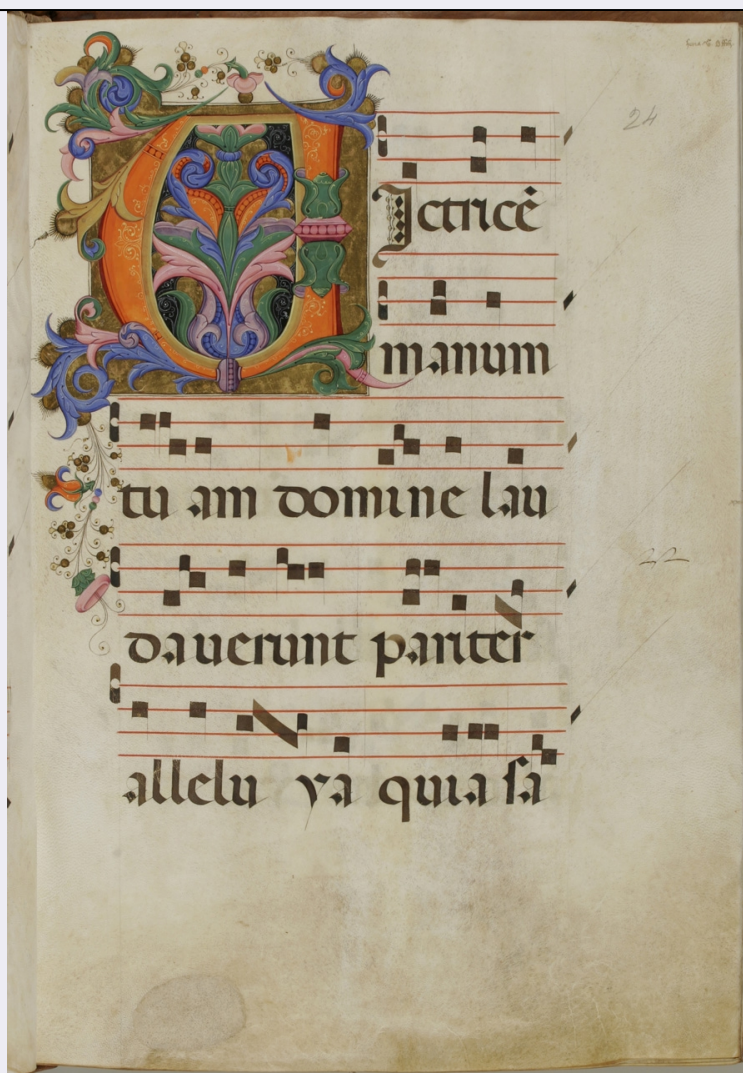 24
VJctricē
manum
tu am domine lau
dauerunt pariter
allelu ya quia sa